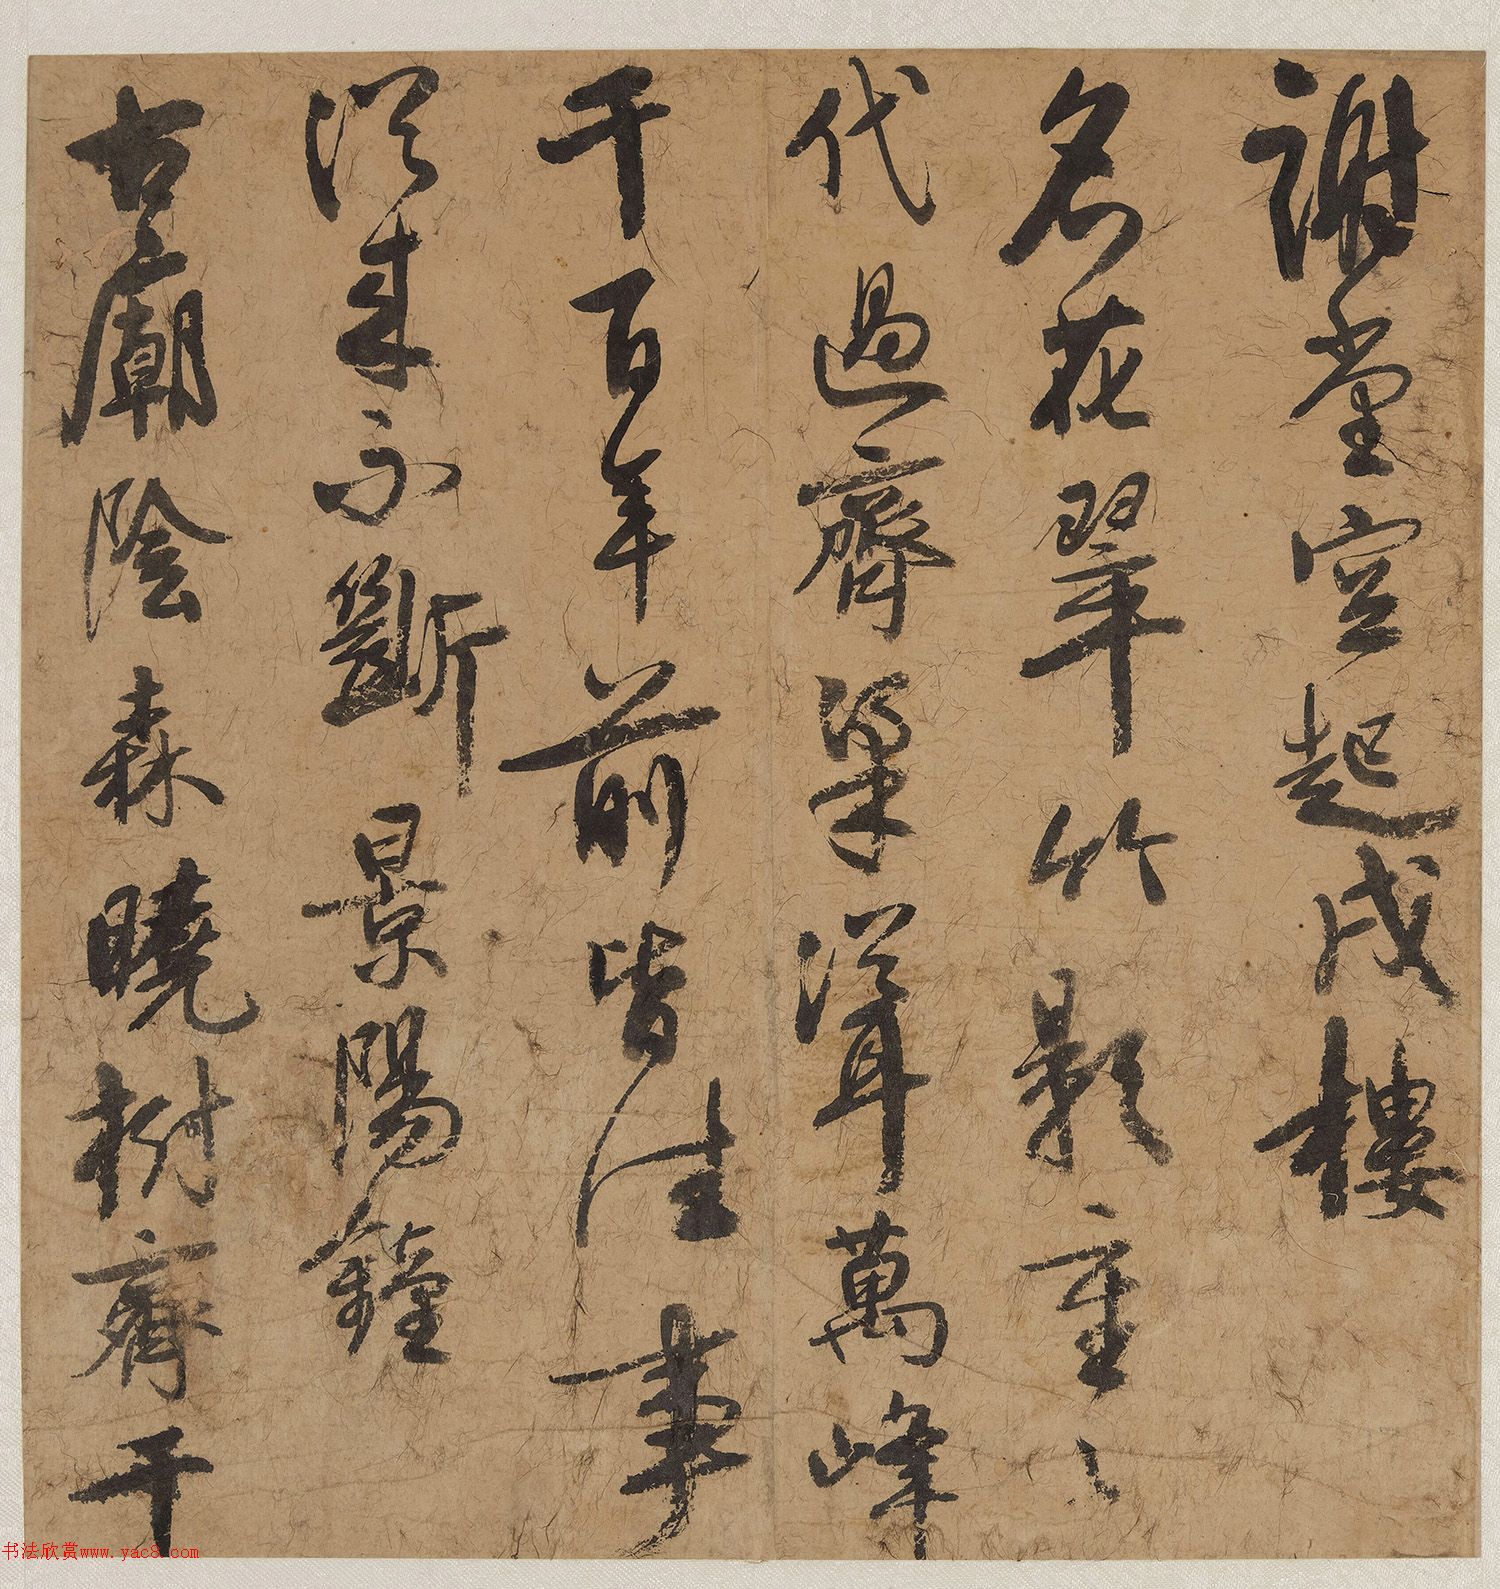 謝堂空起戍樓
名花翠竹影重〻
代過齊梁
萬峰
千百年前皆往事
從来不斷景陽鐘
古廟陰森曉樹齊千
书法欣赏www.yac8.com